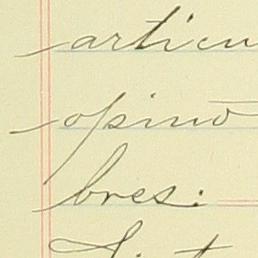 articu
opino
bres: